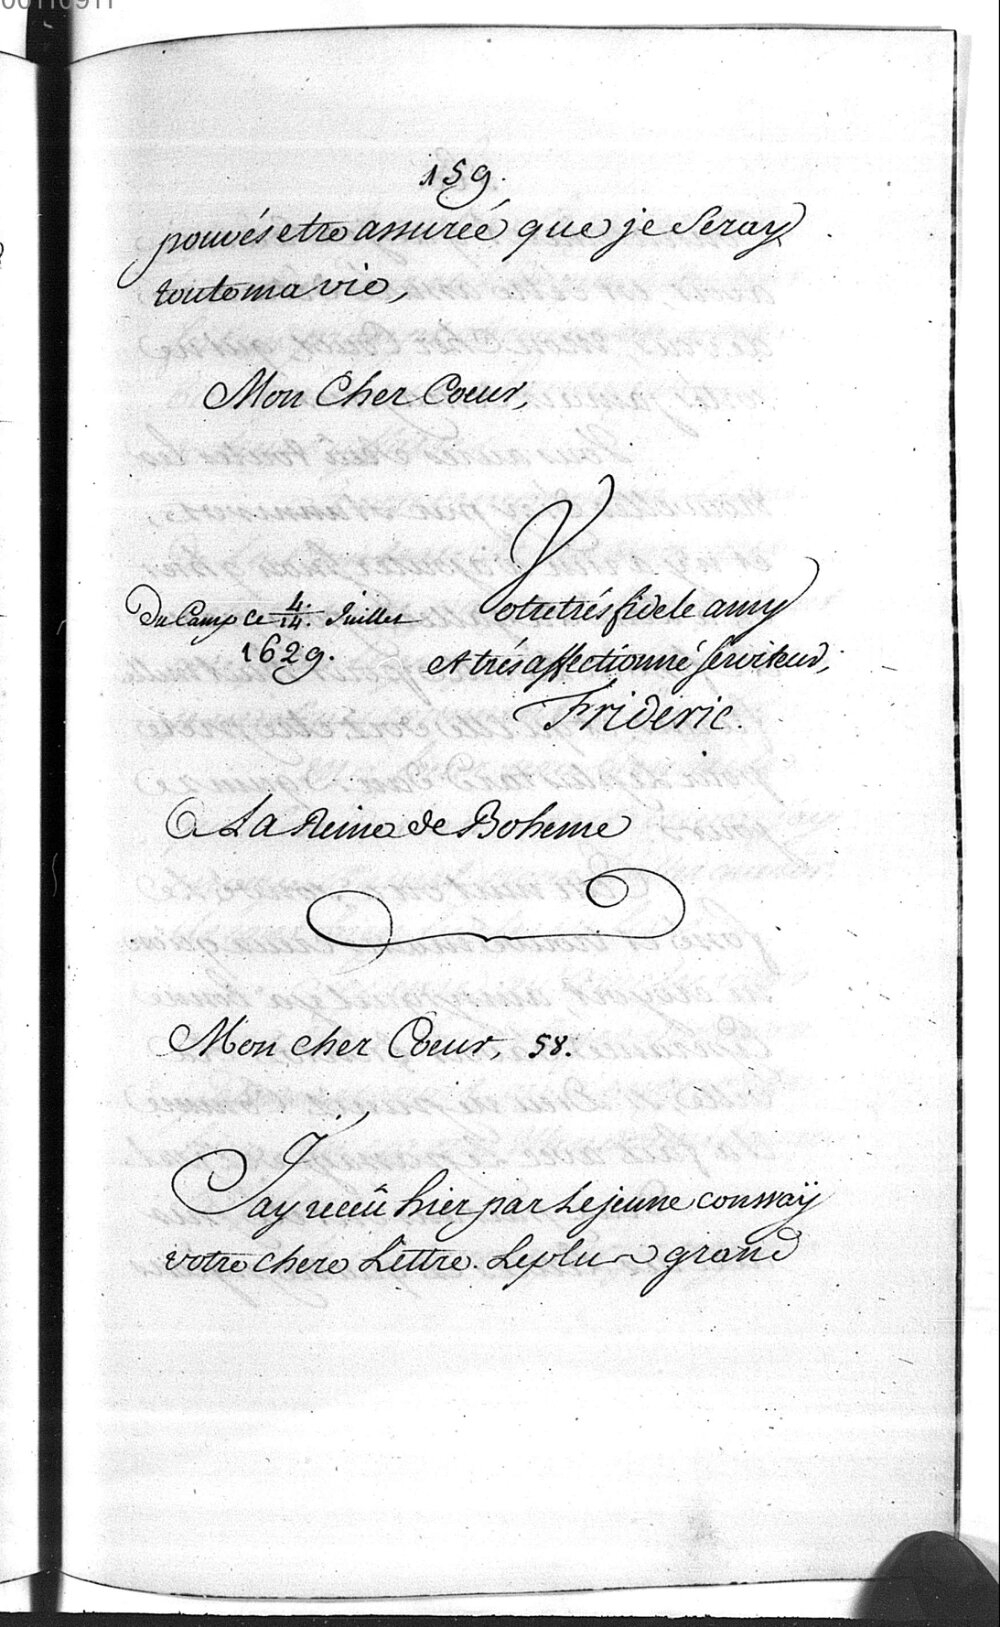 00110911
159.
pouvés etre assurée que je seray
toute ma vie,
Mon Cher Coeur,
Votre trés fidele amy
Du Camp ce 4./14. Juillet
1629.
et trés affectionné serviteur,
Frideric.
A La Reine de Boheme
Mon cher Coeur, 58.
J'ay receû hier par le jeune conway
votre chere Lettre. Le plus grand